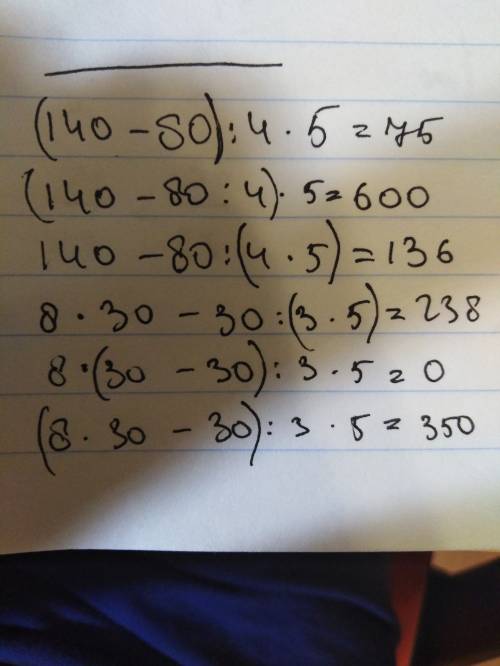 (140 - 80) : 4 · 5 = 75
(140 - 80 : 4) · 5 = 600
140 - 80 : (4 · 5) = 136
8 · 30 - 30 : (3 · 5) = 238
8 · (30 - 30) : 3 · 5 = 0
(8 · 30 - 30) : 3 · 5 = 350